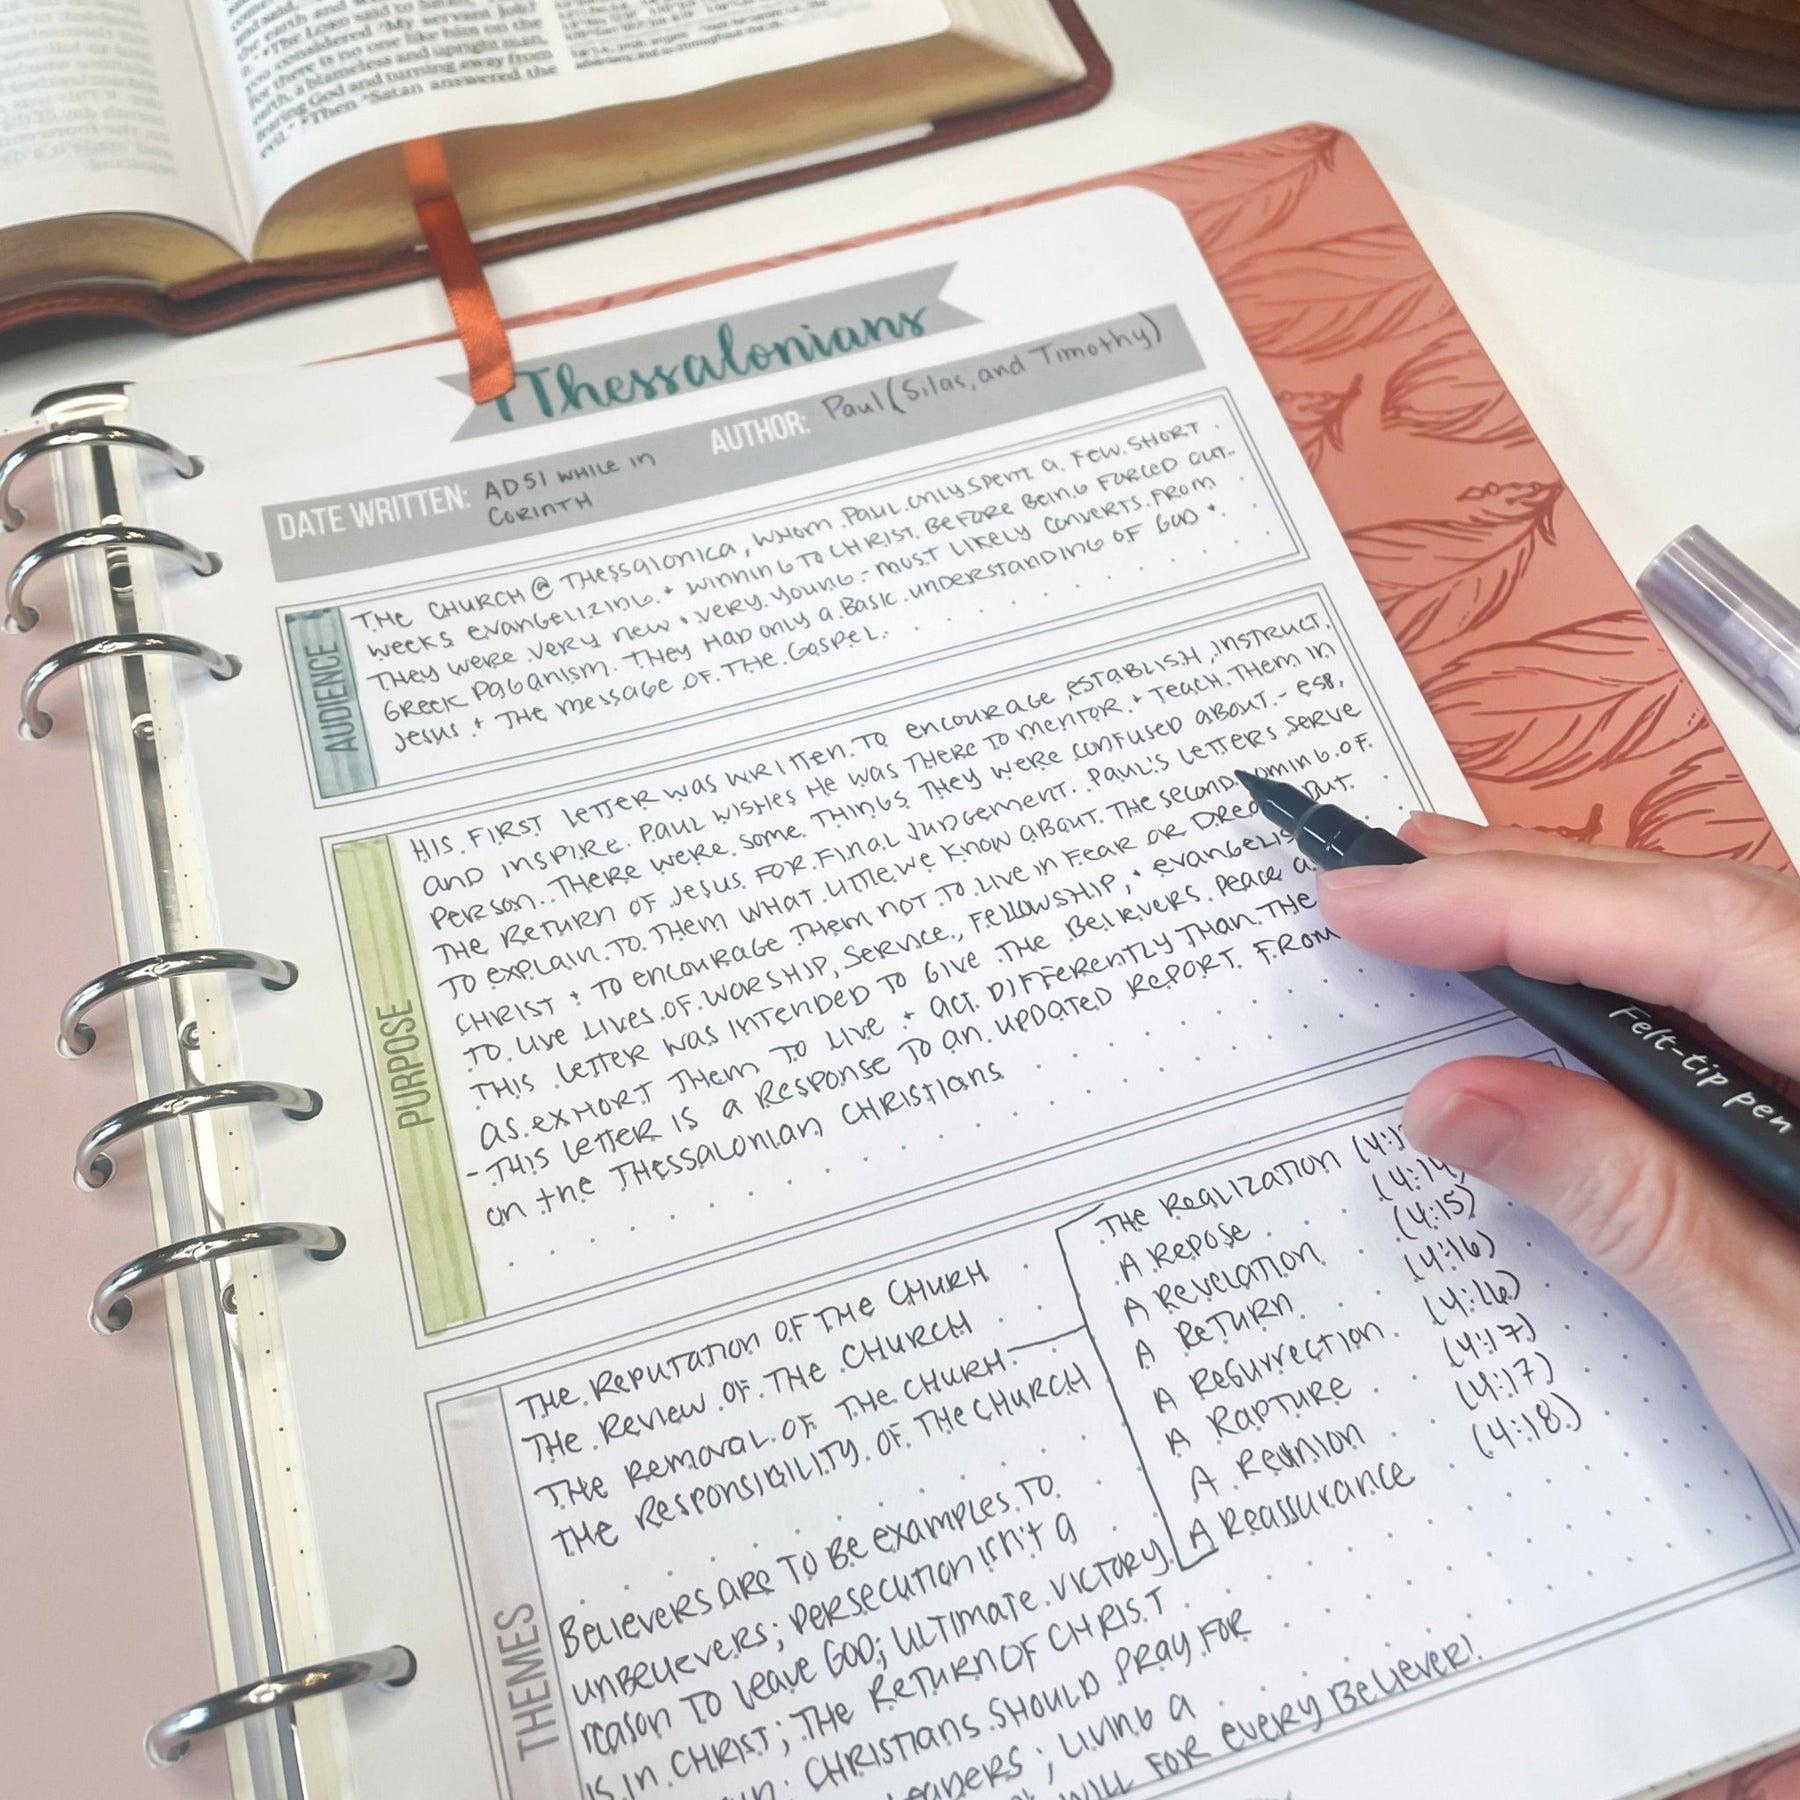 the earth and
it." The LORD said to Satan, "My servant Job?
you considered
for there is no one like him on the
earth, a blameless and upright man,
fearing God and turning away from
evil." Then Satan answered the
1 Thessalonians
DATE WRITTEN: AD 51 WHILE IN CORINTH
AUTHOR: Paul (Silas, and Timothy)
AUDIENCE
THE CHURCH @ THESSALONICA, WHOM PAUL ONLY SPENT A FEW SHORT
WEEKS EVANGELIZING + WINNING TO CHRIST BEFORE BEING FORCED OUT.
THEY WERE VERY NEW + VERY YOUNG - MOST LIKELY CONVERTS FROM
GREEK PAGANISM. THEY HAD ONLY A BASIC UNDERSTANDING OF GOD +
JESUS + THE MESSAGE OF THE GOSPEL.
PURPOSE
HIS FIRST LETTER WAS WRITTEN TO ENCOURAGE, ESTABLISH, INSTRUCT,
AND INSPIRE. PAUL WISHES HE WAS THERE TO MENTOR + TEACH THEM IN
PERSON. THERE WERE SOME THINGS THEY WERE CONFUSED ABOUT - ESP.
THE RETURN OF JESUS FOR FINAL JUDGEMENT. PAUL'S LETTERS SERVE
TO EXPLAIN TO THEM WHAT LITTLE WE KNOW ABOUT THE SECOND COMING OF
CHRIST + TO ENCOURAGE THEM NOT TO LIVE IN FEAR OR DREAD BUT
TO LIVE LIVES OF WORSHIP, SERVICE, FELLOWSHIP, + EVANGELIS
THIS LETTER WAS INTENDED TO GIVE THE BELIEVERS PEACE A
AS EXHORT THEM TO LIVE + ACT DIFFERENTLY THAN THE
- THIS LETTER IS A RESPONSE TO AN UPDATED REPORT FROM
ON THE THESSALONIAN CHRISTIANS
Felt-tip pen
THEMES
THE REPUTATION OF THE CHURH
THE REVIEW OF THE CHURCH
THE REMOVAL OF THE CHURH
THE RESPONSIBILITY OF THE CHURCH
THE REALIZATION (4:1
A REPOSE (4:14
A REVELATION (4:15)
A RETURN (4:16)
A RESURRECTION (4:16)
A RAPTURE (4:17)
A REUNION (4:17)
A REASSURANCE (4:18)
BELIEVERS ARE TO BE EXAMPLES TO
UNBELIEVERS; PERSECUTION ISN'T A
REASON TO LEAVE GOD; ULTIMATE VICTORY
IS IN CHRIST; THE RETURN OF CHRIST
CHRISTIANS SHOULD PRAY FOR
LEADERS; LIVING A
WILL FOR EVERY BELIEVER!